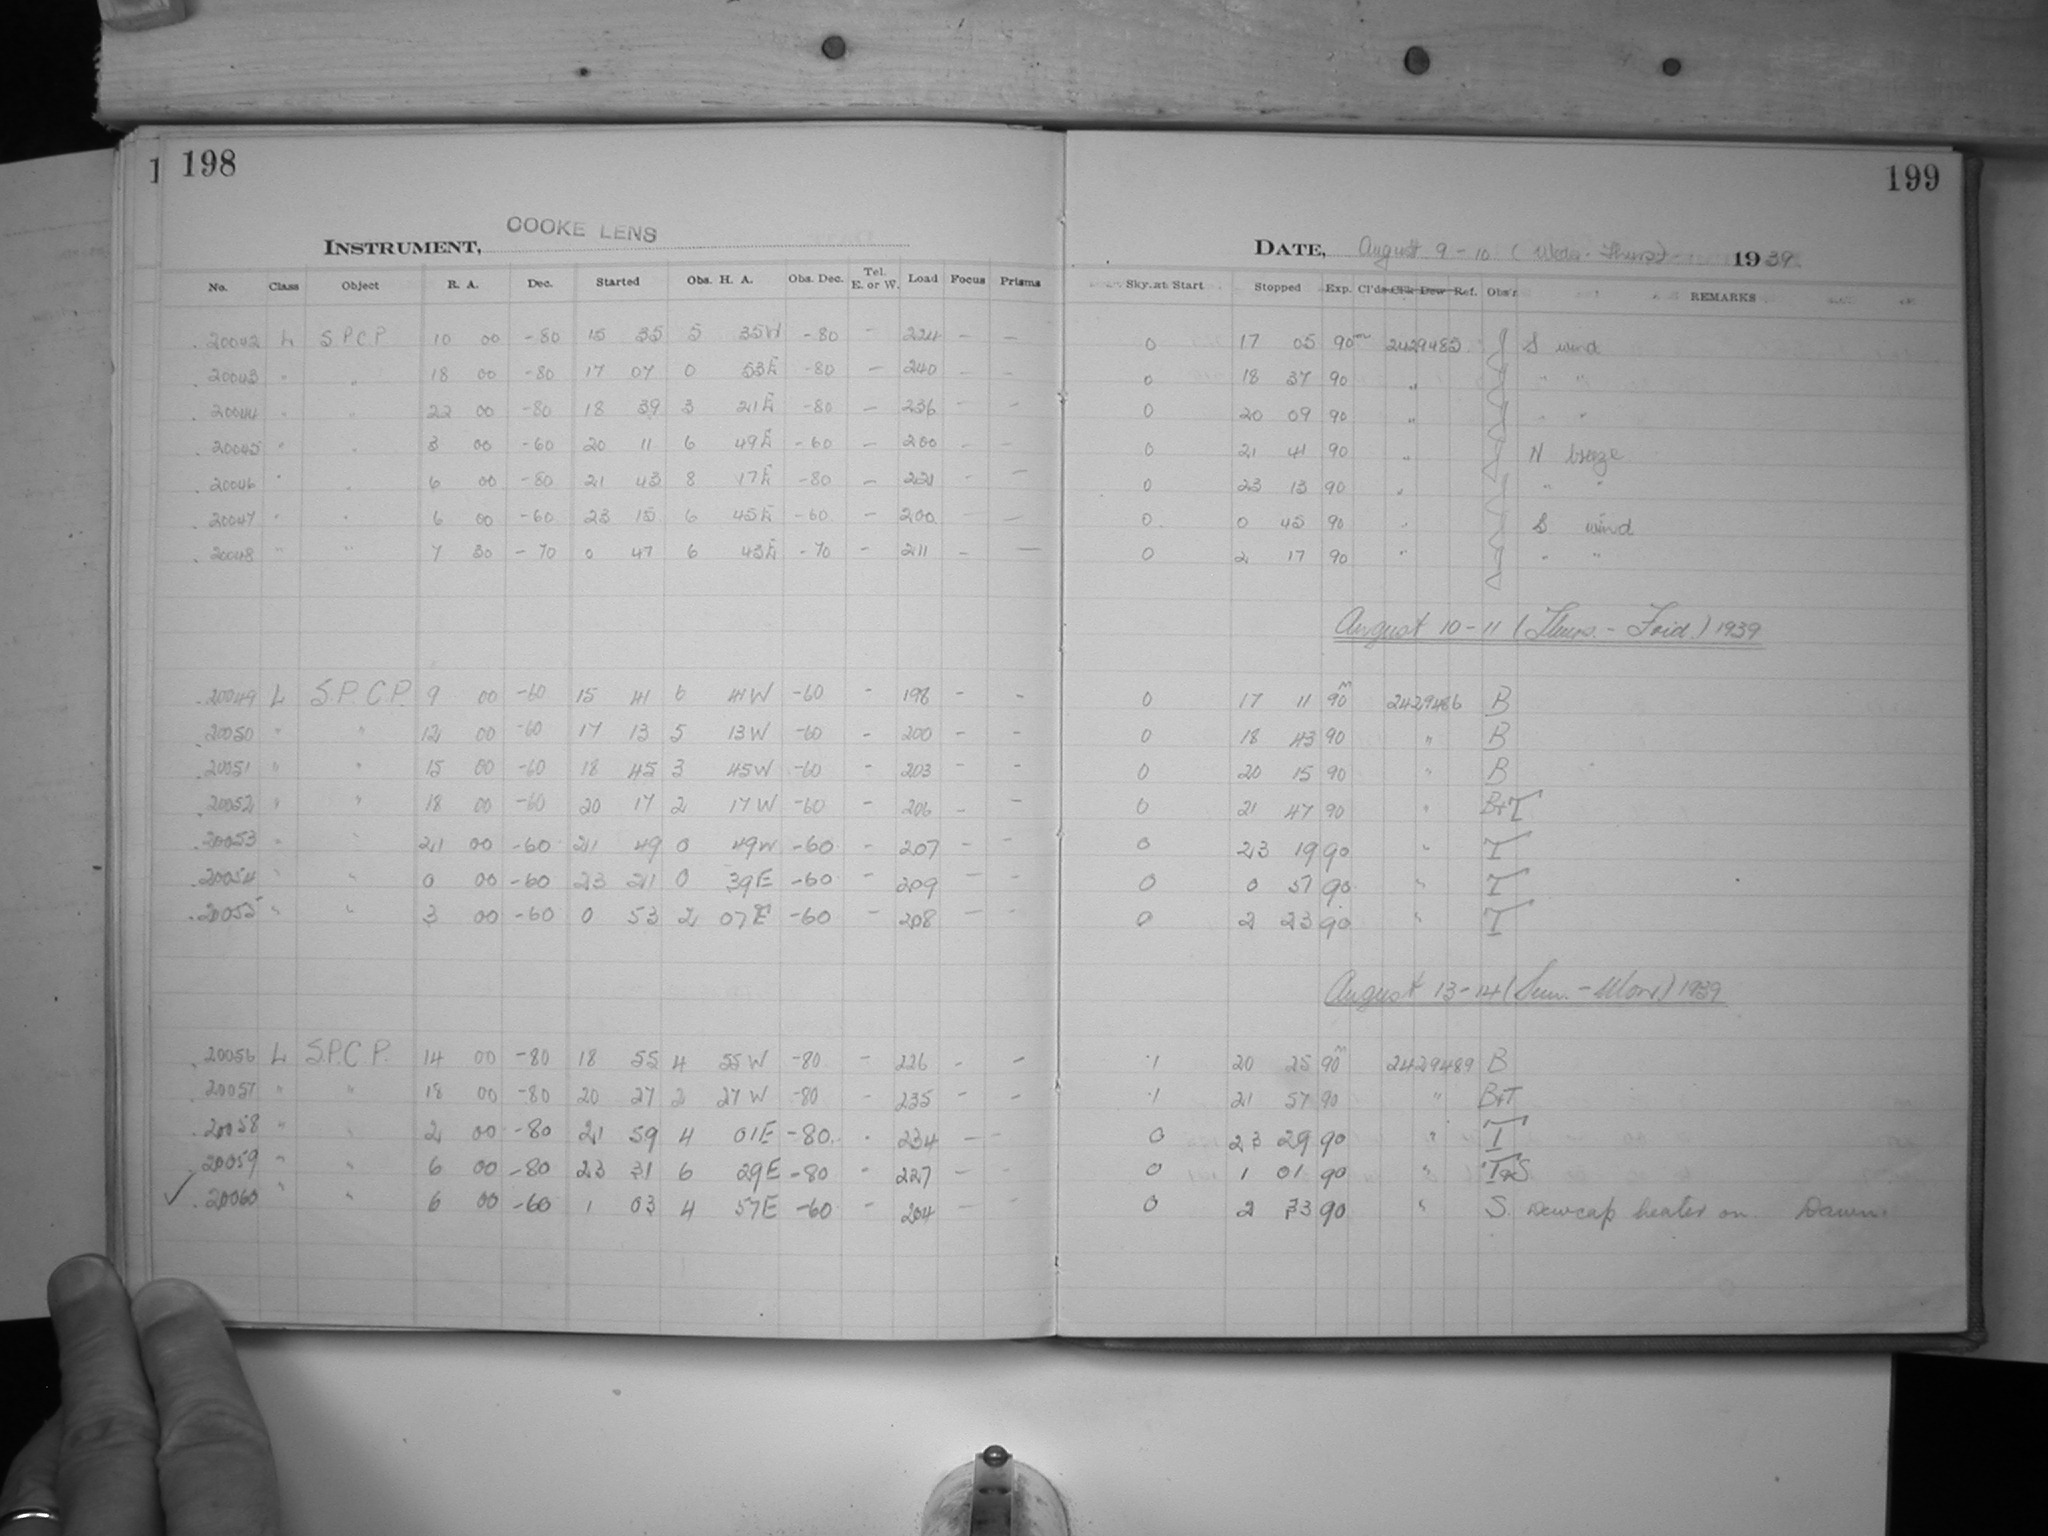 198
199
COOKE LENS
INSTRUMENT,
DATE, August 9 - 10 (Weds - Thurs) 1939
No. Class Object R. A. Dec. Started Obs. H. A. Obs. Dec. Tel. E. or W. Load Focus Prisms Sky at Start Stopped Exp. Cl'ds Cl'k Dew Ref. Obs'r REMARKS
20042 L S.P.C.P. 10 00 -80 15 35 5 35W -80 - 224 - - 0 17 05 90m 2429485 S wind
20043 " " 18 00 -80 17 07 0 53E -80 - 240 - - 0 18 37 90 " " "
20044 " " 22 00 -80 18 39 3 21E -80 - 236 - - 0 20 09 90 " " "
20045 " " 3 00 -60 20 11 6 49E -60 - 200 - - 0 21 41 90 " N breeze
20046 " " 6 00 -80 21 43 8 17E -80 - 221 - - 0 23 13 90 " " "
20047 " " 6 00 -60 23 15 6 45E -60 - 200 - - 0 0 45 90 " S wind
20048 " " 7 30 -70 0 47 6 43E -70 - 211 - - 0 2 17 90 " " "
August 10-11 (Thurs. - Frid.) 1939
20049 L S.P.C.P. 9 00 -60 15 41 6 41W -60 - 198 - - 0 17 11 90m 2429486 B
20050 " " 12 00 -60 17 13 5 13W -60 - 200 - - 0 18 43 90 " B
20051 " " 15 00 -60 18 45 3 45W -60 - 203 - - 0 20 15 90 " B
20052 " " 18 00 -60 20 17 2 17W -60 - 206 - - 0 21 47 90 " B+T
20053 " " 21 00 -60 21 49 0 49W -60 - 207 - - 0 23 19 90 " T
20054 " " 0 00 -60 23 21 0 39E -60 - 209 - - 0 0 51 90 " T
20055 " " 3 00 -60 0 53 2 07E -60 - 208 - - 0 2 23 90 " T
August 13-14 (Sun. - Mon.) 1939
20056 L S.P.C.P. 14 00 -80 18 55 4 55W -80 - 226 - - .1 20 25 90m 2429489 B
20057 " " 18 00 -80 20 27 2 27W -80 - 235 - - .1 21 57 90 " B+T
20058 " " 2 00 -80 21 59 4 01E -80 - 234 - - 0 23 29 90 " T
20059 " " 6 00 -80 23 31 6 29E -80 - 227 - - 0 1 01 90 " T&S
✓ 20060 " " 6 00 -60 1 03 4 57E -60 - 204 - - 0 2 33 90 " S. Dewcap heater on. Dawn.